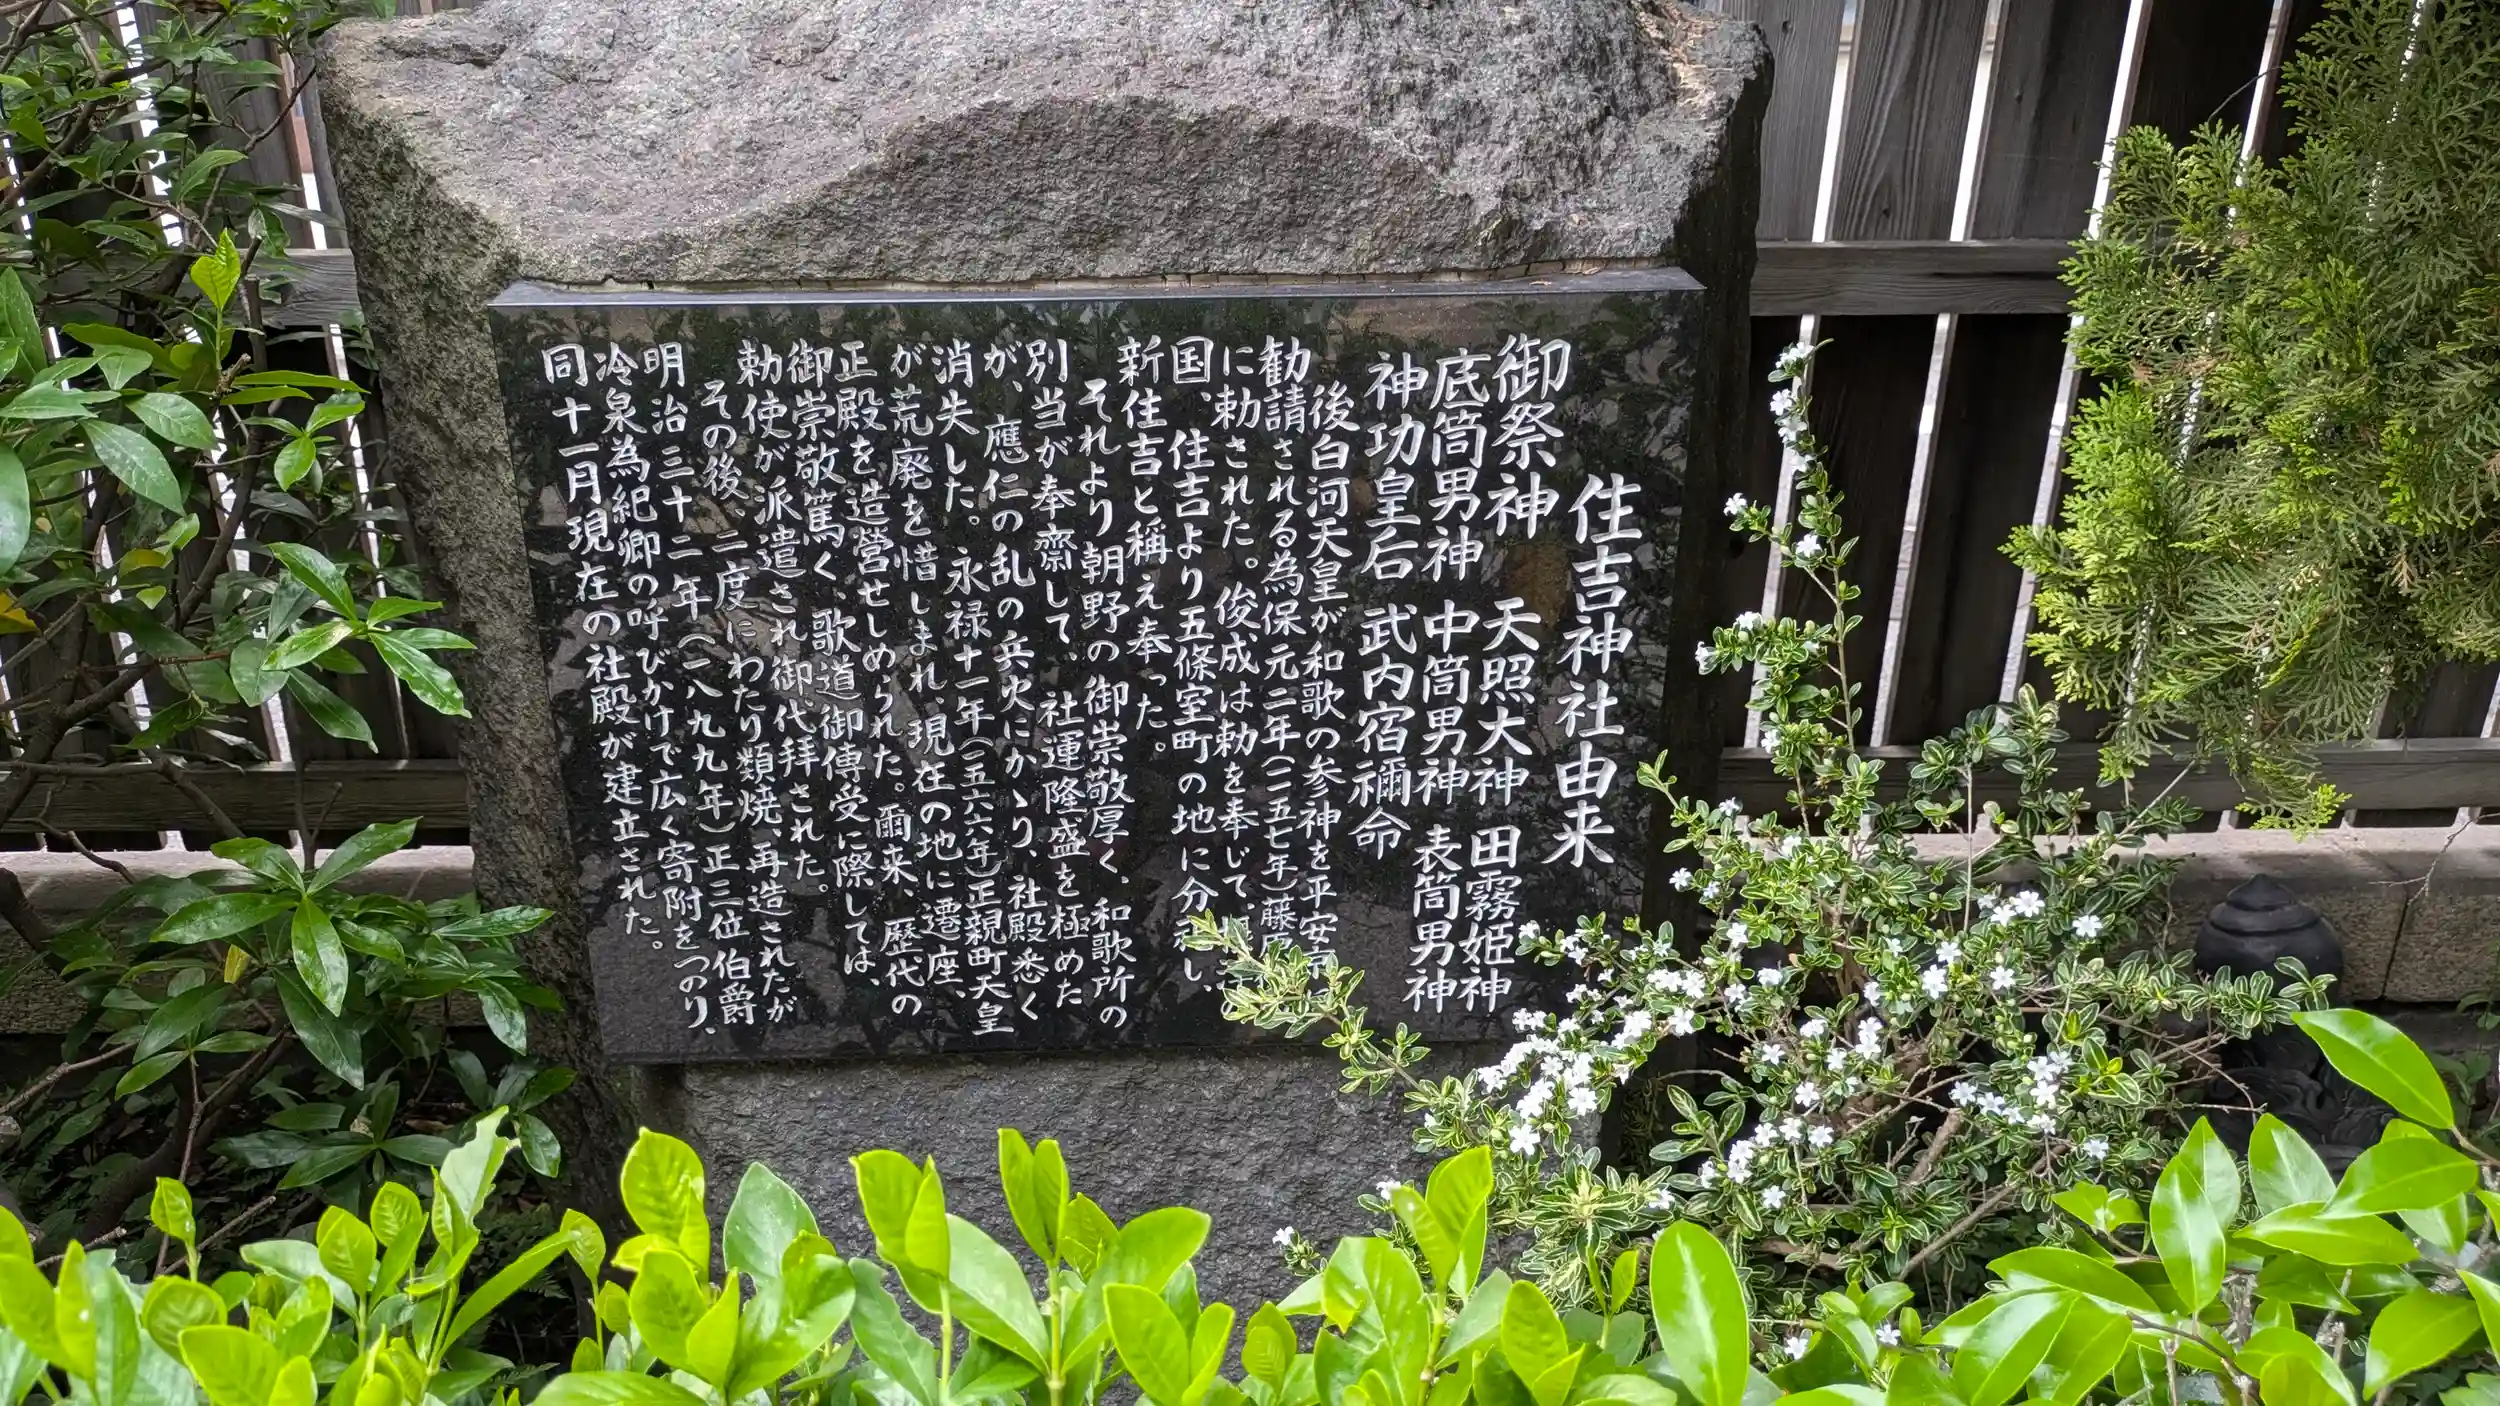 住吉神社由来
御祭神 天照大神 田霧姫神
底筒男神 中筒男神 表筒男神
神功皇后 武内宿禰命
後白河天皇が和歌の参神を平安京
勧請される為保元二年(一一五七年)藤原
に勅された。俊成は勅を奉じて、
国、住吉より五條室町の地に分祀し、
新住吉と稱え奉った。
それより朝野の御崇敬厚く、和歌所の
別当が奉齋して、社運隆盛を極めた
が、應仁の乱の兵火にかゝり、社殿悉く
消失した。永禄十一年(一五六六年)正親町天皇
が荒廃を惜しまれ、現在の地に遷座、
正殿を造營せしめられた。爾来、歴代の
御崇敬篤く、歌道御傳受に際しては、
勅使が派遣され御代拝された。
その後、二度にわたり類焼、再造されたが
明治三十二年(一八九九年)正三位伯爵
冷泉為紀卿の呼びかけで広く寄附をつのり、
同十一月現在の社殿が建立された。